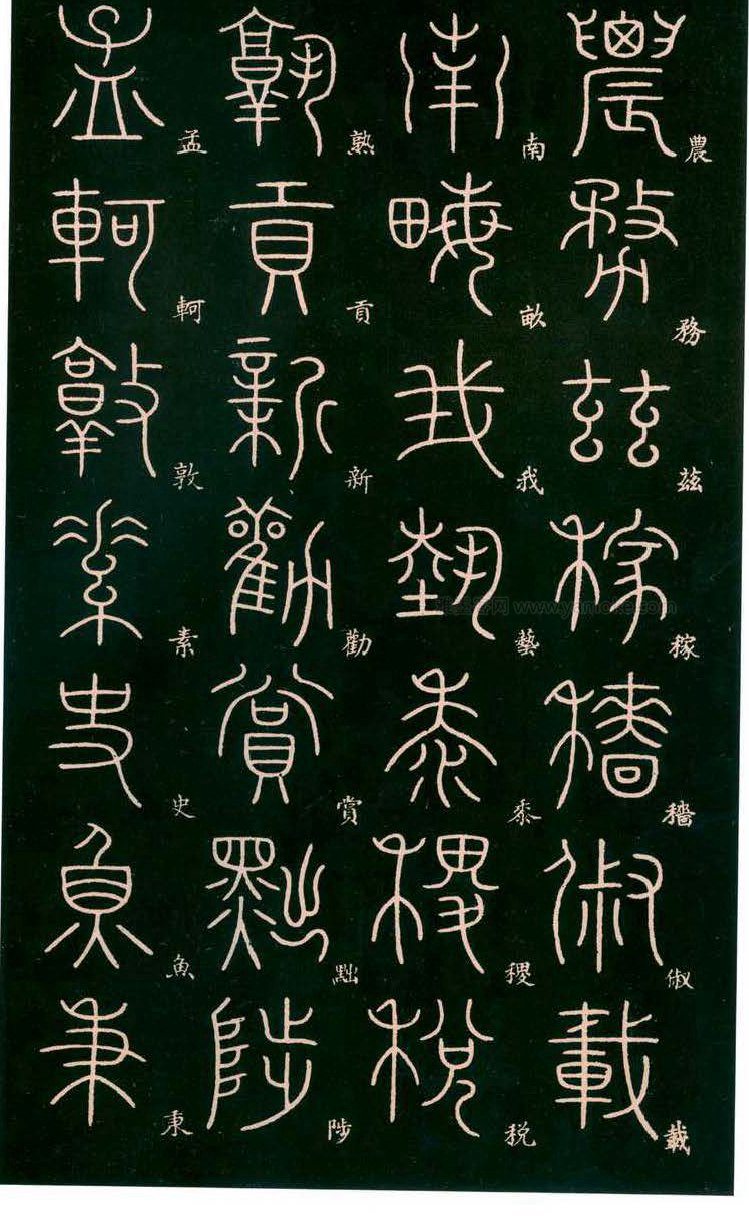 農務茲稼穡俶載
南畝我藝黍稷稅
熟貢新勸賞黜陟
孟軻敦素史魚秉